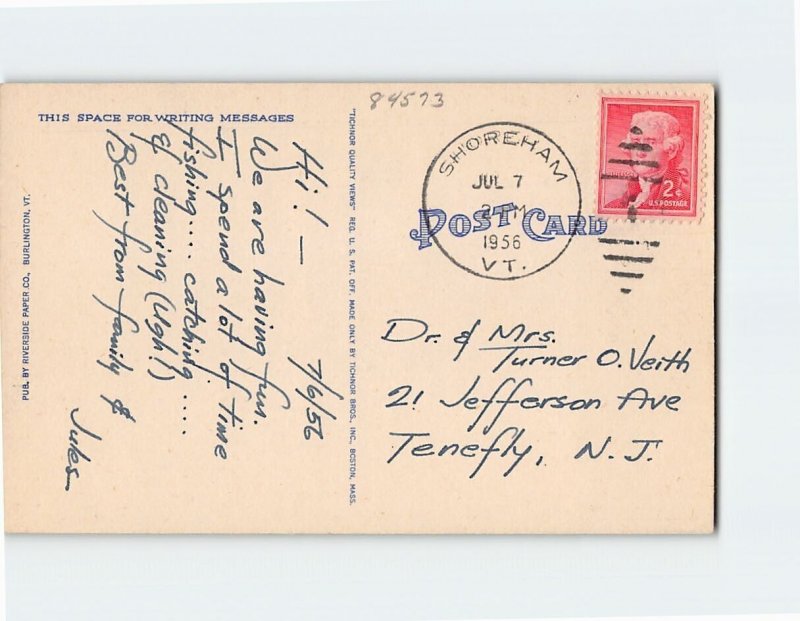 84573
THIS SPACE FOR WRITING MESSAGES
7/6/56
Hi! —
We are having fun.
I spend a lot of time
fishing.... catching....
& cleaning (Ugh!)
Best from family &
Jules
PUB. BY RIVERSIDE PAPER CO., BURLINGTON, VT.
"TICHNOR QUALITY VIEWS" REG. U. S. PAT. OFF. MADE ONLY BY TICHNOR BROS., INC., BOSTON, MASS.
SHOREHAM
JUL 7
1956
VT.
POST CARD
2¢
U.S. POSTAGE
Dr. & Mrs.
Turner O. Veith
21 Jefferson Ave
Tenefly, N. J.